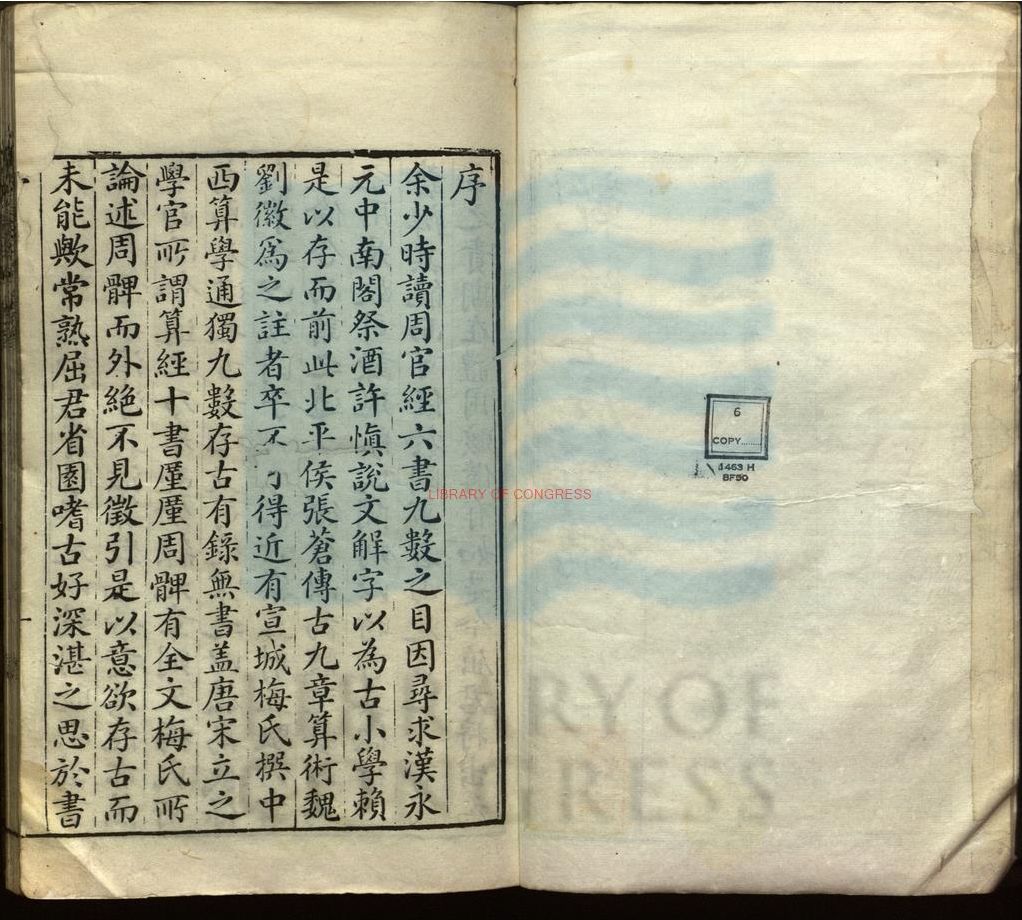 序
余少時讀周官經六書九數之目因尋求漢永
元中南閣祭酒許慎說文解字以為古小學賴
是以存而前此北平侯張蒼傳古九章算術魏
劉徽為之註者卒不得近有宣城梅氏撰中
西算學通獨九數存古有錄無書盖唐宋立之
學官所謂算經十書厪厪周髀有全文梅氏所
論述周髀而外絶不見徵引是以意欲存古而
未能歟常熟屈君省園嗜古好深湛之思於書
6
COPY
1463 H
BF50
LIBRARY OF CONGRESS